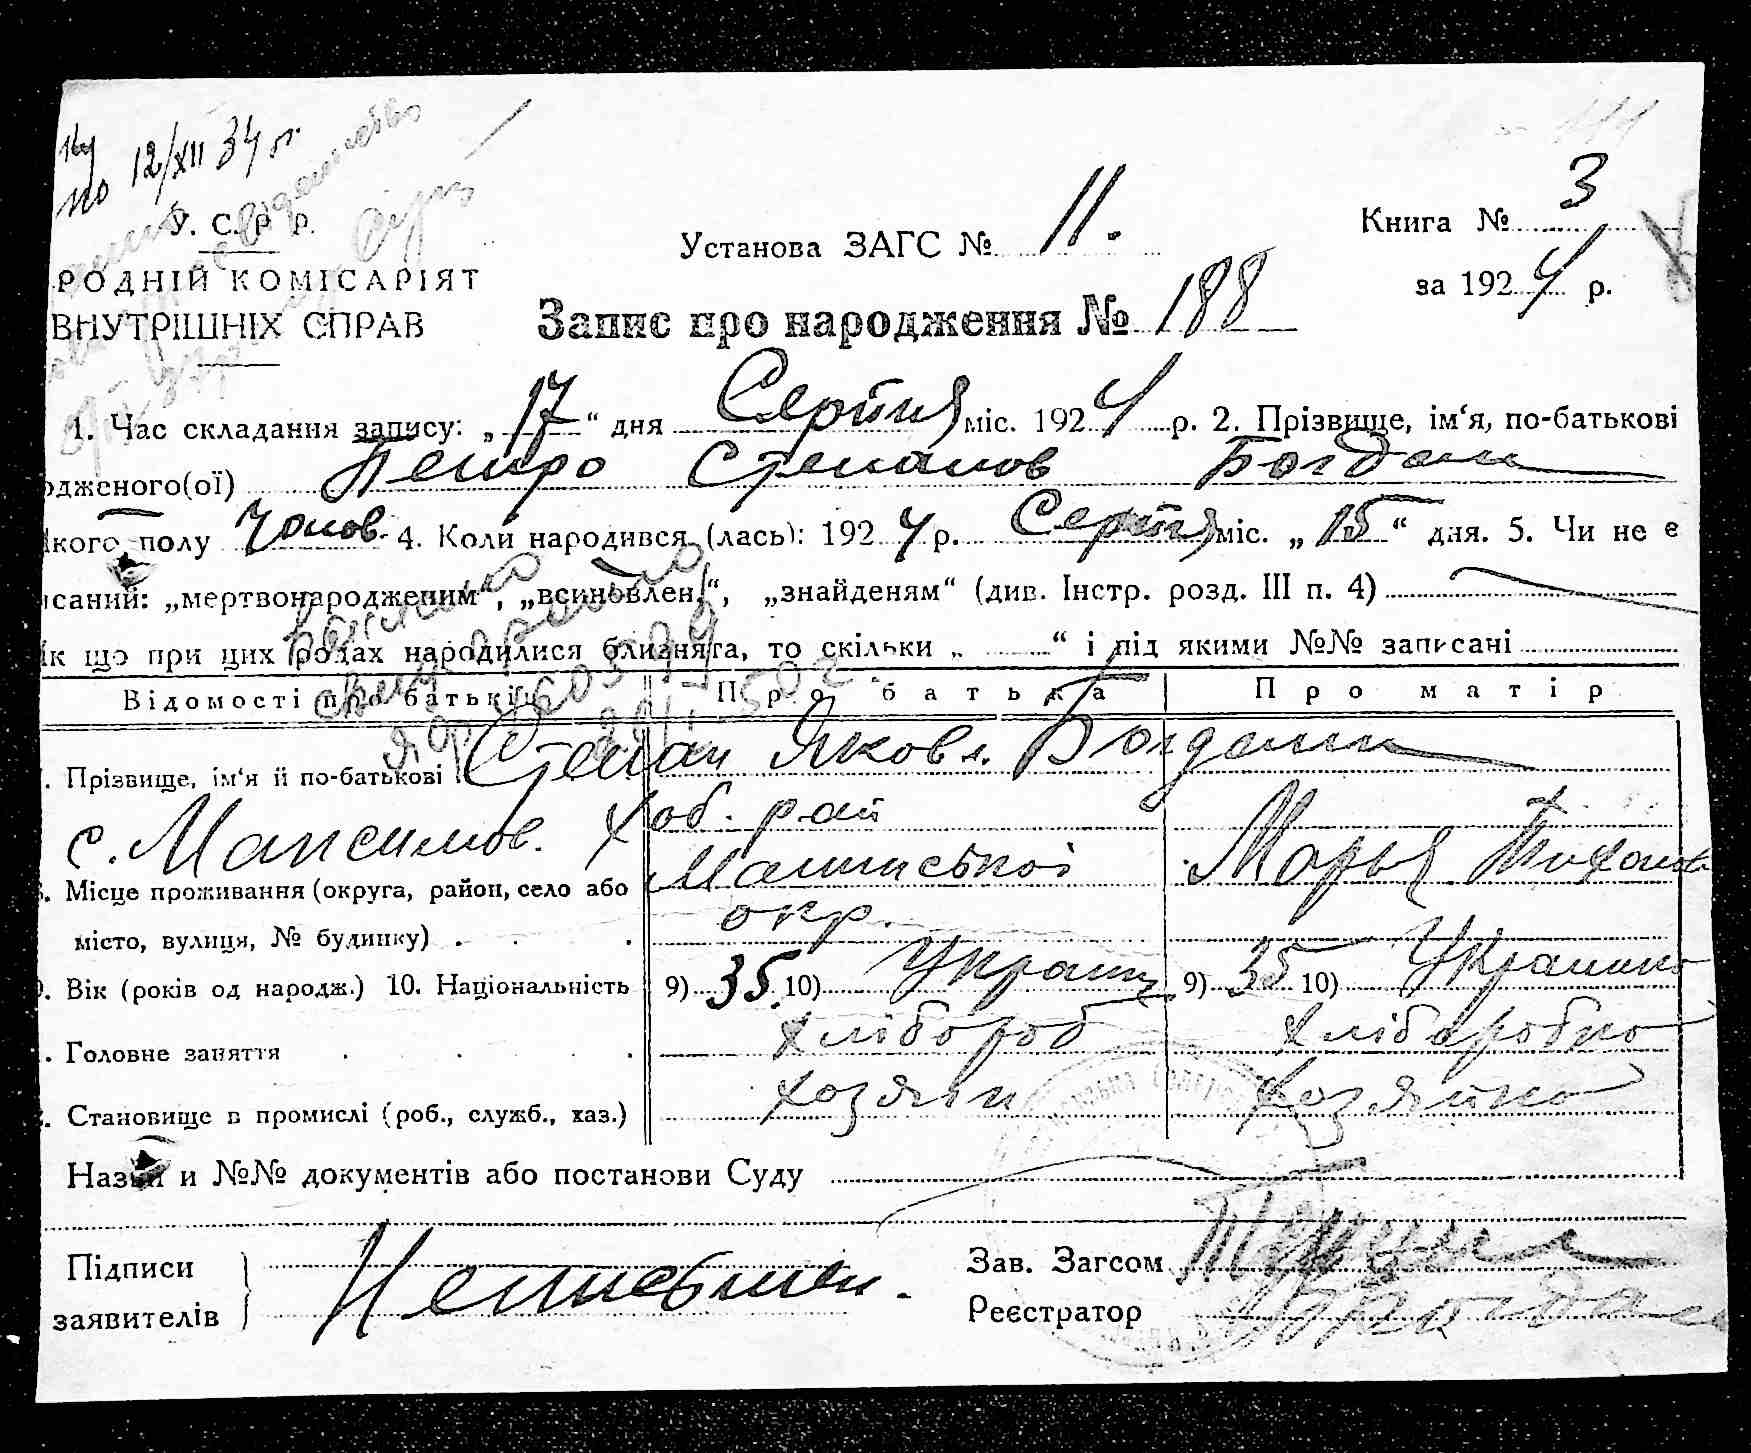 12/XII 34 р.
У. С. Р. Р.
РОДНІЙ КОМІСАРІЯТ
ВНУТРІШНІХ СПРАВ
Установа ЗАГС № 11.
Книга № 3
за 1924 р.
Запис про народження № 188
1. Час складання запису: „17“ дня Серпня міс. 1924 р. 2. Прізвище, ім‘я, по-батькові
одженого(ої) Петро Степанов Богдан
якого полу чолов. 4. Коли народився (лась): 1924 р. Серпня міс. „15“ дня. 5. Чи не є
исаний: „мертвонародженим“, „всиновлен.“, „знайденям“ (див. Інстр. розд. III п. 4)
як що при цих родах народилися близнята, то скільки „ “ і під якими №№ записані
Відомості про батьків Про батька Про матір
. Прізвище, ім‘я й по-батькові Степан Яковл. Богдан
с. Максимов. Хоб. рай
Марья Тихонов
. Місце проживання (округа, район, село або
місто, вулиця, № будинку) . . . окр.
. Вік (років од народж.) 10. Національність 9) 35 10) Украин 9) 35 10) Украинка
. Головне заняття . . . . хлібороб хлібаробка
. Становище в промислі (роб., служб., хаз.) хозяїн хозяйка
Назви и №№ документів або постанови Суду
Підписи
заявителів
Неписьмен.
Зав. Загсом
Реєстратор